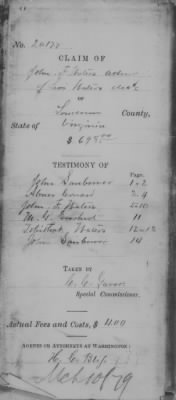 No. 20177
CLAIM OF
John F Waters adm
of Waters decd
OF
Loudoun County,
State of Virginia
$ 698.00
TESTIMONY OF
Page.
John Sanbower 1-2
Abner Conard 2-4
John F Waters 5-10
M. 11
Waters 12-13
John Sanbower 14
TAKEN BY
Special Commissioner.
Actual Fees and Costs, $ 4.00
AGENTS OR ATTORNEYS AT WASHINGTON:
Mch 10/79